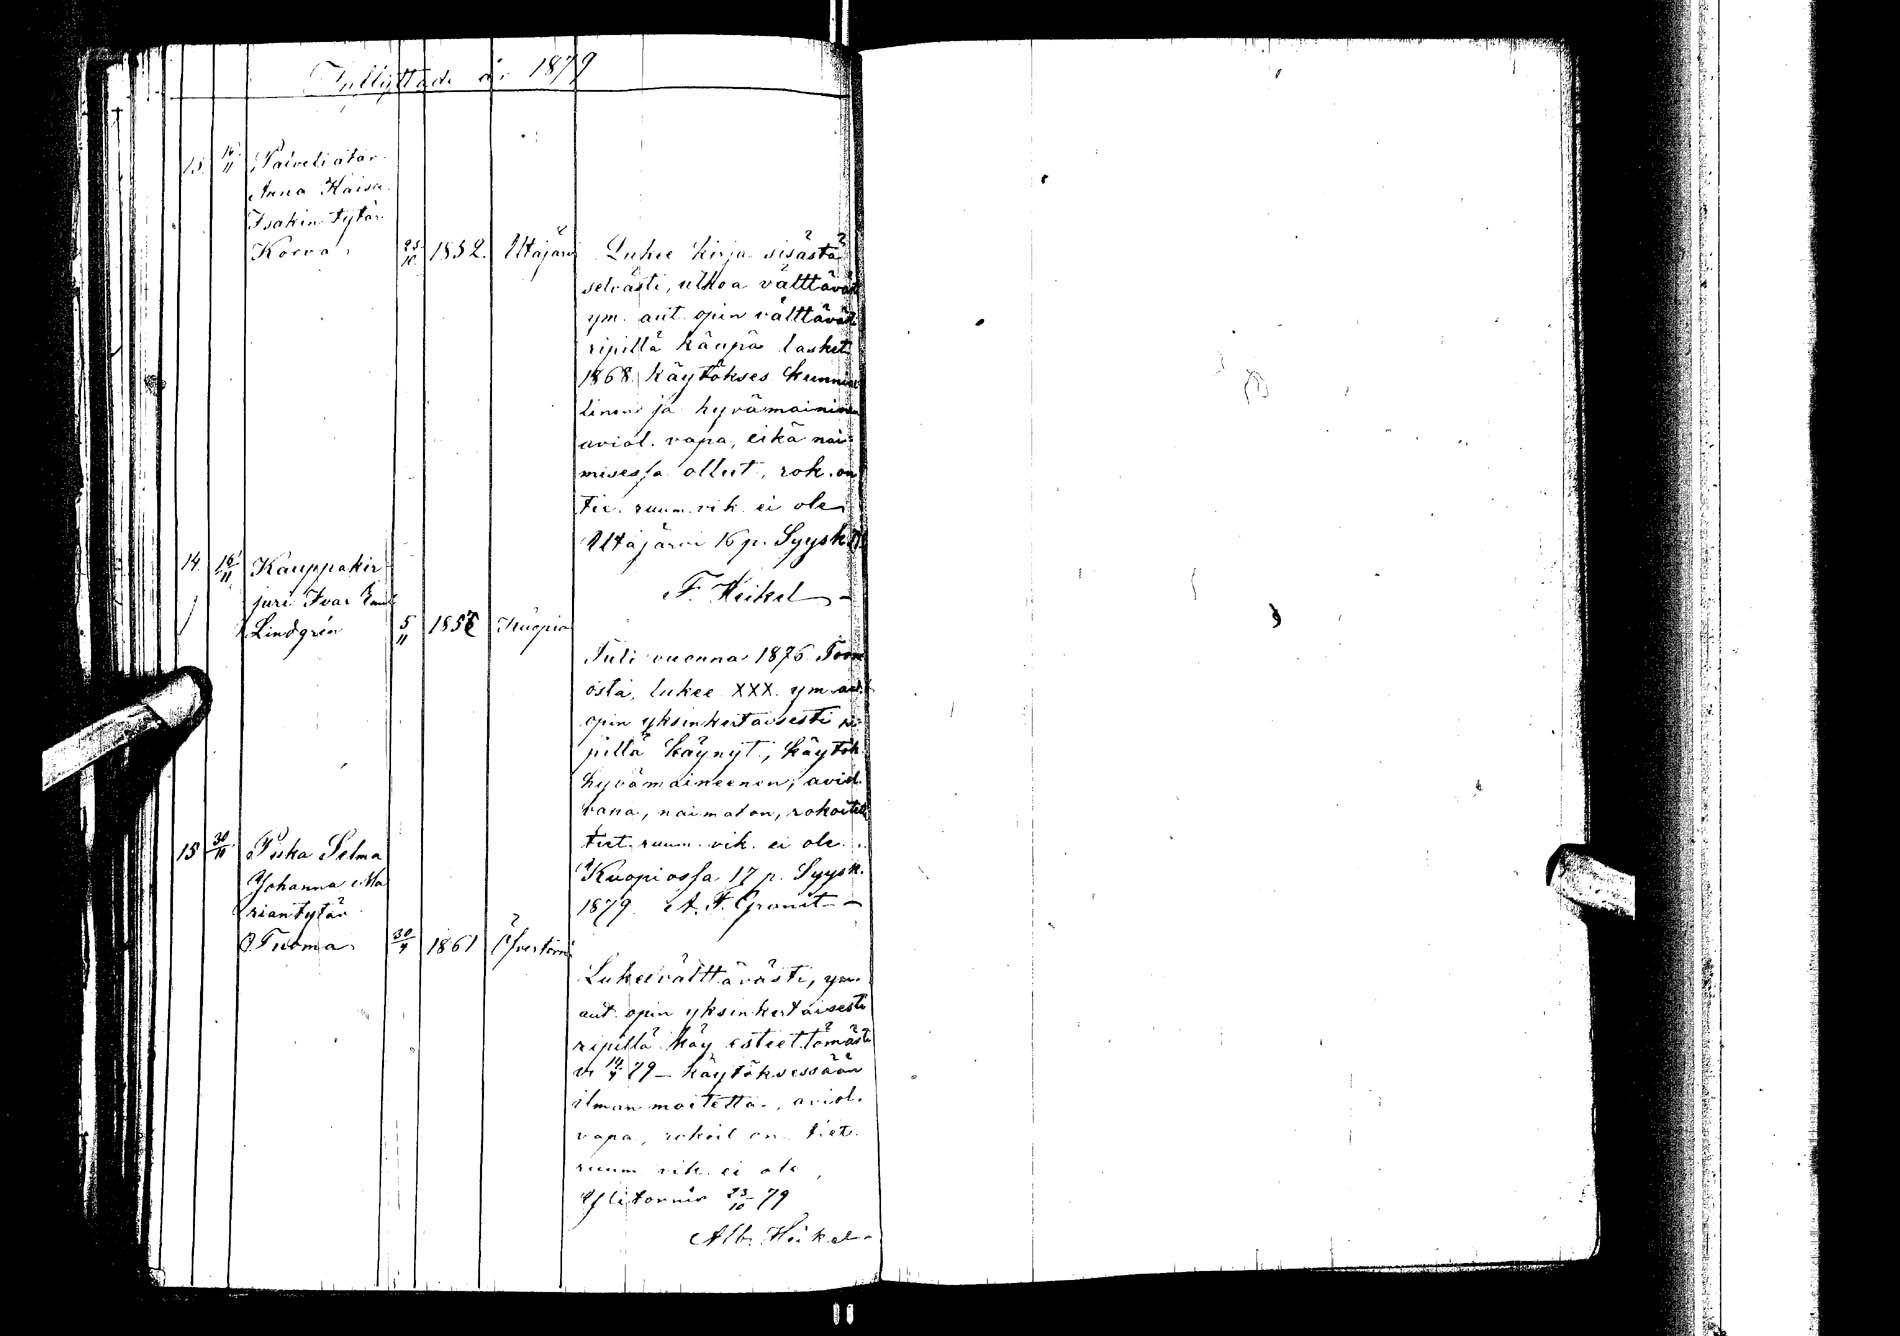 Inflyttade år 1879
13. 16/11 Palveliatar
Anna Kaisa
Isakin tytär
Korva 25/10 1852. Utajärvi Lukee kirja sisästä
selvästi, ulkoa välttäväst
ym. aut. opin välttäväst
ripillä käupä laskett
1868. käytökses kunnial
linen ja hyvämaininen
aviol. vapa, eikä nai-
misessa ollut, rok. on
tie. ruum. vik. ei ole
Utajärvi 16 p. Syysk. 79
F. Heikel
14. 16/11 Kauppakir-
juri Ivar Emil
Lindgrén 5/11 1856 Kuopio
Tuli vuonna 1876
östä, lukee XXX. ym. aut.
opin yksinkertaisesti ri
pillä käynyt, käytök
hyvämaineenen, aviol.
vapa, naimaton, rokoitettu
tiet. ruum. vik. ei ole.
Kuopiossa 17 p. Syysk.
1879. A. F. Granit
15 30/10 Piika Selma
Johanna Ma
riantytär
Tuoma 30/4 1861 Öfvertorneå
Lukee välttävästi, ym.
aut. opin yksinkertaisesti
ripillä käy esteettömästi
79 – käytöksessään
ilman moitetta, aviol.
vapa, rokoit on tiet.
ruum vik. ei ole,
Ylitornio 23/10 79
Alb. Heikel